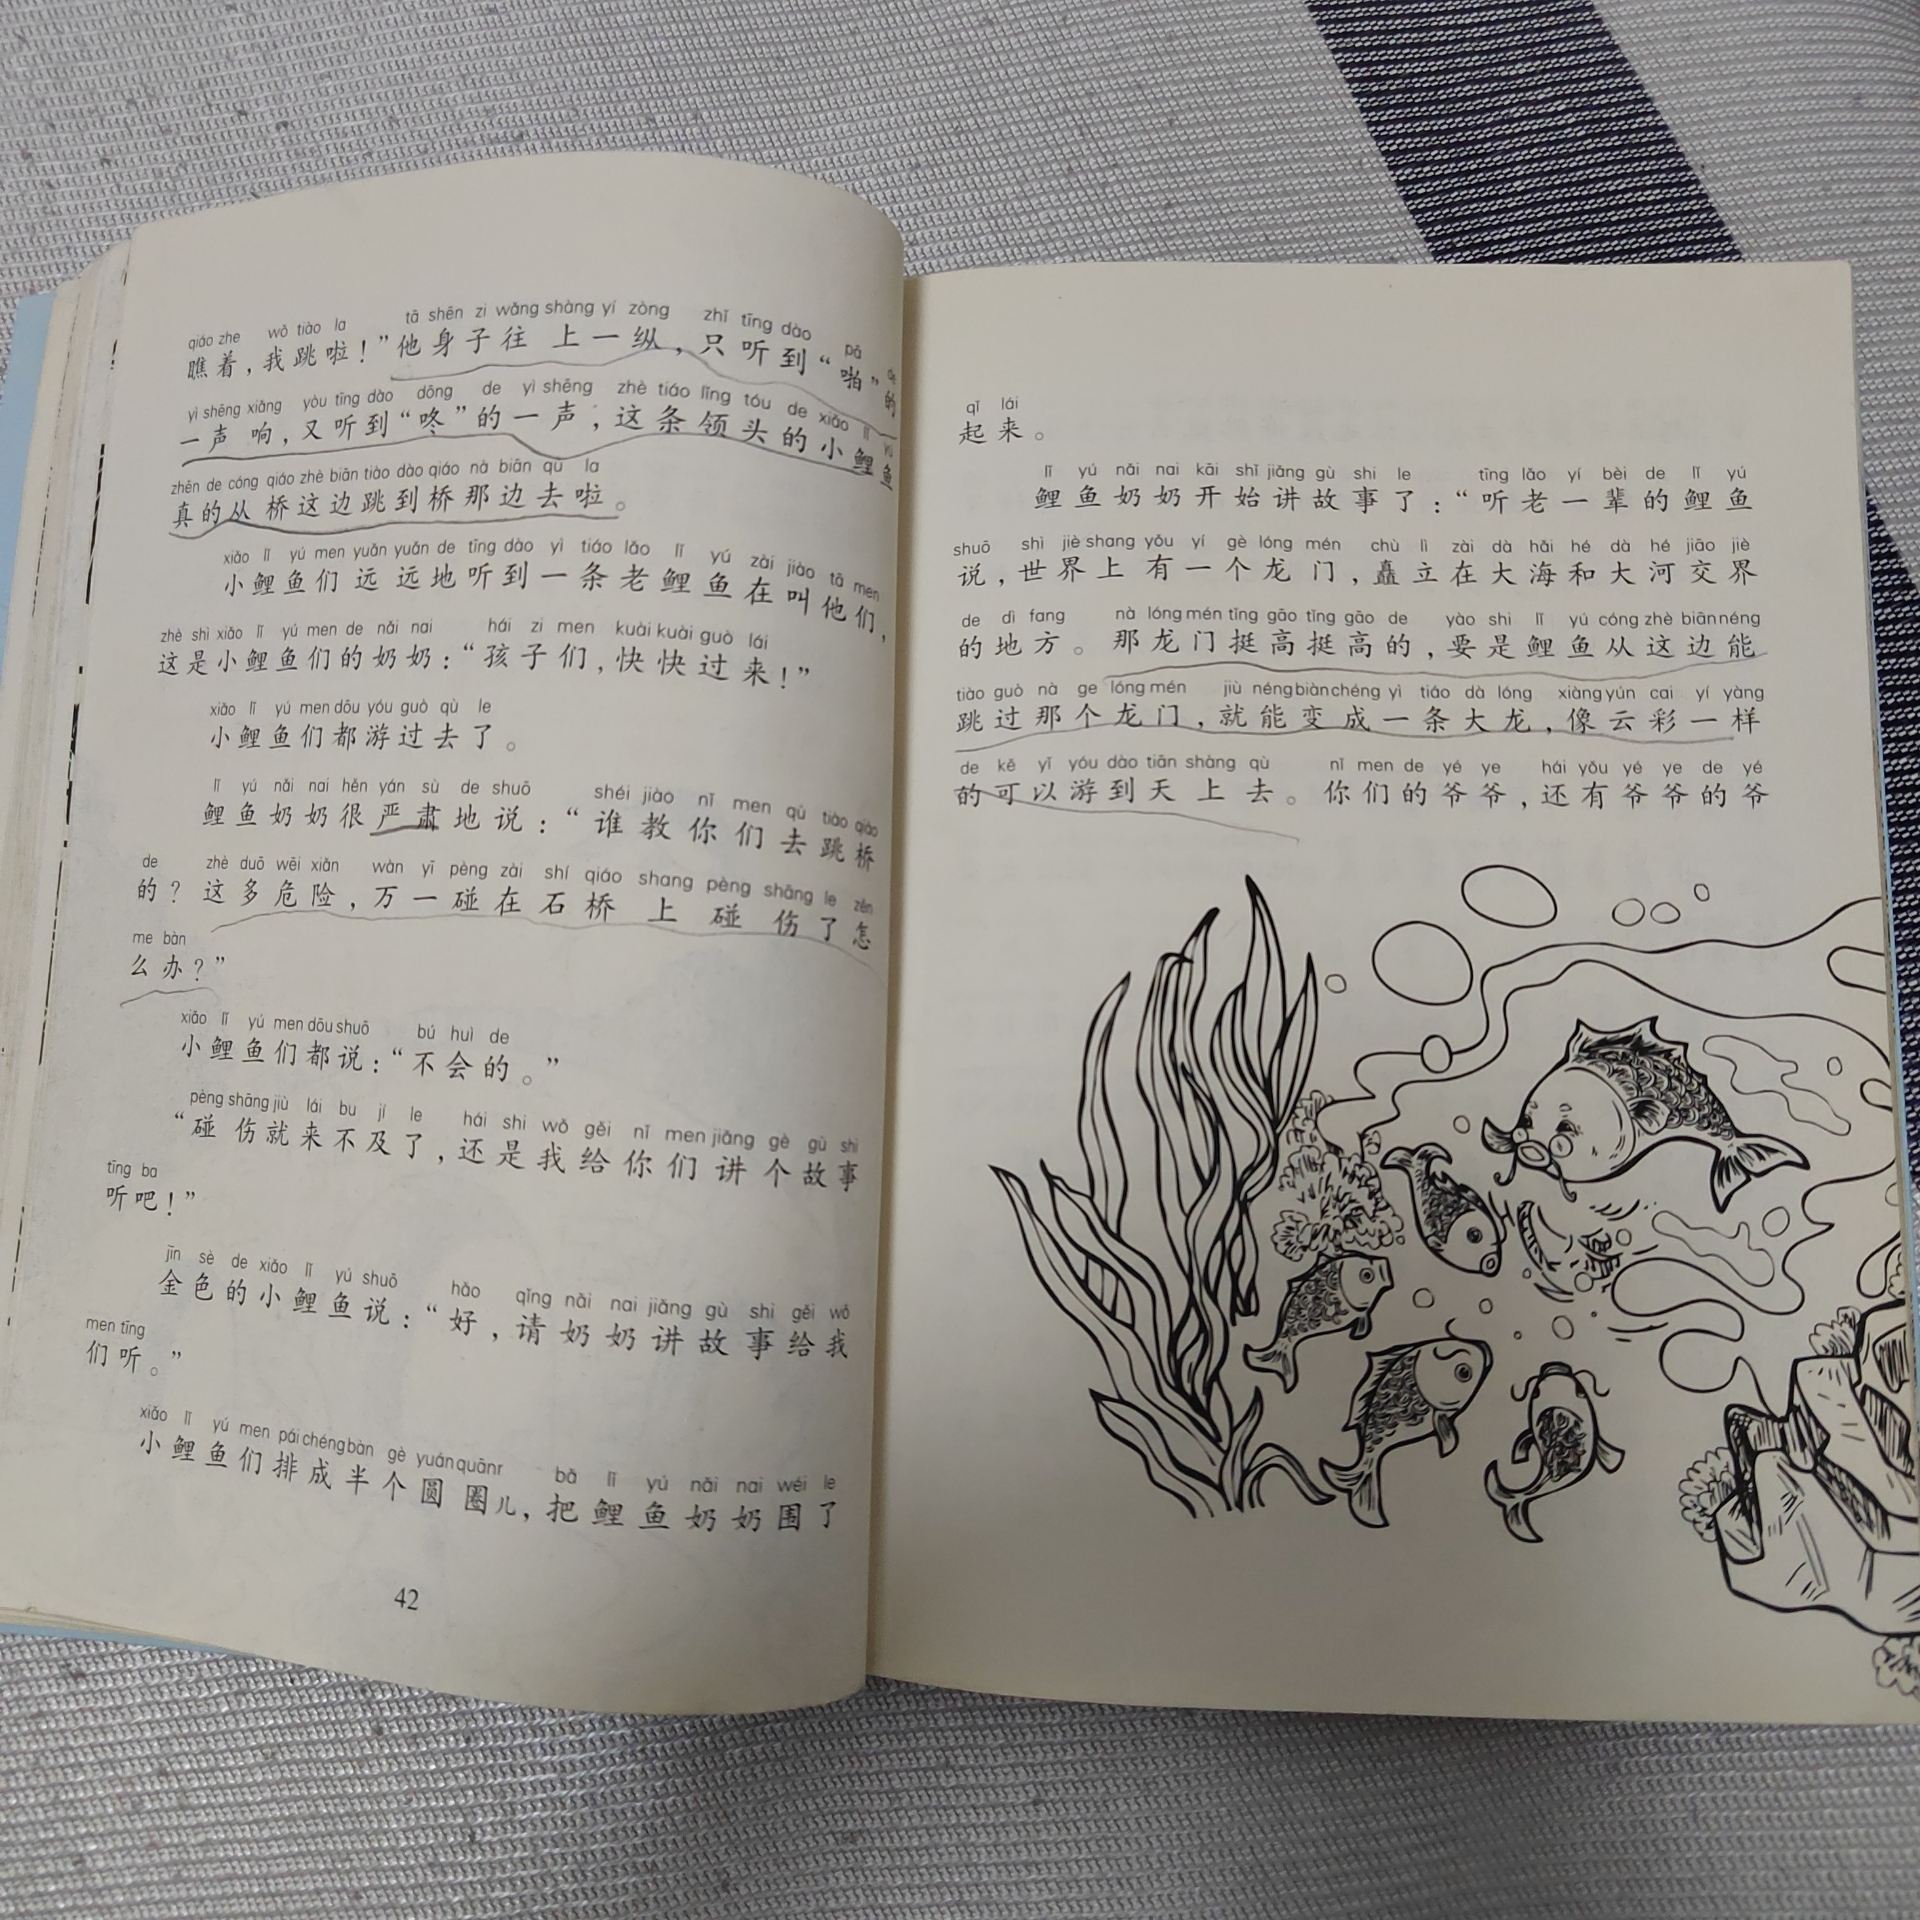 qiáo zhe wǒ tiào la tā shēn zi wǎng shàng yí zòng zhǐ tīng dào pā de
瞧着，我跳啦！”他身子往上一纵，只听到“啪”的
yì shēng xiǎng yòu tīng dào dōng de yì shēng zhè tiáo lǐng tóu de xiǎo lǐ yú
一声响，又听到“咚”的一声，这条领头的小鲤鱼
zhēn de cóng qiáo zhè biān tiào dào qiáo nà biān qù la
真的从桥这边跳到桥那边去啦。
xiǎo lǐ yú men yuǎn yuǎn de tīng dào yì tiáo lǎo lǐ yú zài jiào tā men
小鲤鱼们远远地听到一条老鲤鱼在叫他们，
zhè shì xiǎo lǐ yú men de nǎi nai hái zi men kuài kuài guò lái
这是小鲤鱼们的奶奶：“孩子们，快快过来！”
xiǎo lǐ yú men dōu yóu guò qù le
小鲤鱼们都游过去了。
lǐ yú nǎi nai hěn yán sù de shuō shéi jiào nǐ men qù tiào qiáo
鲤鱼奶奶很严肃地说：“谁教你们去跳桥
de zhè duō wēi xiǎn wàn yī pèng zài shí qiáo shang pèng shāng le zěn
的？这多危险，万一碰在石桥上碰伤了怎
me bàn
么办？”
xiǎo lǐ yú men dōu shuō bú huì de
小鲤鱼们都说：“不会的。”
pèng shāng jiù lái bu jí le hái shi wǒ gěi nǐ men jiǎng gè gù shi
“碰伤就来不及了，还是我给你们讲个故事
tīng ba
听吧！”
jīn sè de xiǎo lǐ yú shuō hǎo qǐng nǎi nai jiǎng gù shi gěi wǒ
金色的小鲤鱼说：“好，请奶奶讲故事给我
men tīng
们听。”
xiǎo lǐ yú men pái chéng bàn gè yuán quānr bǎ lǐ yú nǎi nai wéi le
小鲤鱼们排成半个圆圈儿，把鲤鱼奶奶围了
42
qǐ lái
起来。
lǐ yú nǎi nai kāi shǐ jiǎng gù shi le tīng lǎo yí bèi de lǐ yú
鲤鱼奶奶开始讲故事了：“听老一辈的鲤鱼
shuō shì jiè shang yǒu yí gè lóng mén chù lì zài dà hǎi hé dà hé jiāo jiè
说，世界上有一个龙门，矗立在大海和大河交界
de dì fang nà lóng mén tǐng gāo tǐng gāo de yào shi lǐ yú cóng zhè biān néng
的地方。那龙门挺高挺高的，要是鲤鱼从这边能
tiào guò nà ge lóng mén jiù néng biàn chéng yì tiáo dà lóng xiàng yún cai yí yàng
跳过那个龙门，就能变成一条大龙，像云彩一样
de kě yǐ yóu dào tiān shàng qù nǐ men de yé ye hái yǒu yé ye de yé
的可以游到天上去。你们的爷爷，还有爷爷的爷